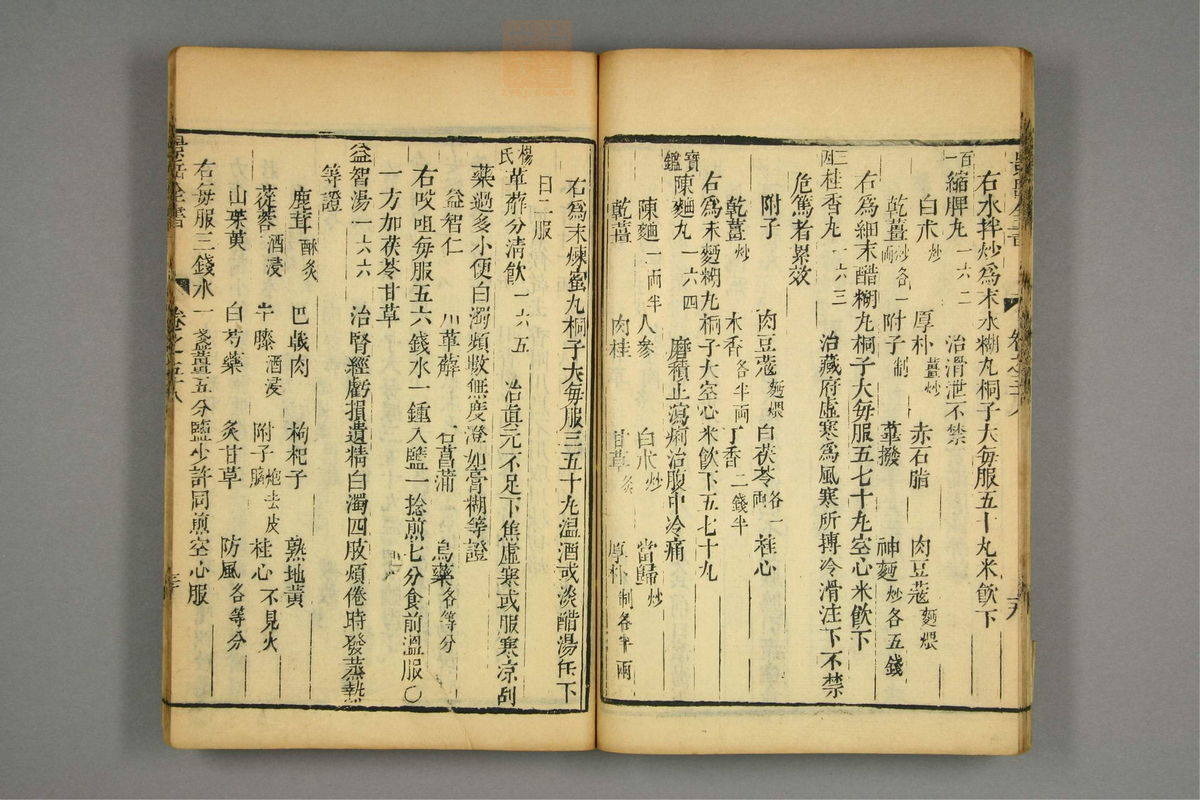 右水拌炒爲末水糊丸桐子大每服五十丸米飲下
百一縮脾丸一六二 治滑泄不禁
白朮炒 厚朴薑炒 赤石脂 肉豆蔻麵煨
乾薑炒各一兩 附子制 蓽撥 神麯炒各五錢
右爲細末醋糊丸桐子大每服五七十丸空心米飲下
三因桂香丸一六三 治藏府虛寒爲風寒所搏冷滑注下不禁
危篤者累效
附子 肉豆蔻麵煨 白茯苓各一兩 桂心
乾薑炒 木香各半兩 丁香二錢半
右爲末麵糊丸桐子大空心米飲下五七十丸
寶鑑陳麯丸一六四 磨積止瀉痢治腹中冷痛
陳麯一兩半 人參 白朮炒 當歸炒
乾薑 肉桂 甘草炙 厚朴制各半兩
右爲末煉蜜丸桐子大每服三五十丸温酒或淡醋湯任下
日二服
楊氏萆薢分清飲一六五 治眞元不足下焦虛寒或服寒凉刮
藥過多小便白濁頻數無度澄如膏糊等證
益智仁 川萆薢 石菖蒲 烏藥各等分
右㕮咀每服五六錢水一鍾入鹽一捻煎七分食前溫服○
一方加茯苓甘草
益智湯一六六 治腎經虧損遺精白濁四肢煩倦時發蒸熱
等證
鹿茸酥炙 巴戟肉 枸杞子 熟地黄
蓯蓉酒浸 牛膝酒浸 附子炮去皮臍 桂心不見火
山茱萸 白芍藥 炙甘草 防風各等分
右每服三錢水一盞薑五分鹽少許同煎空心服